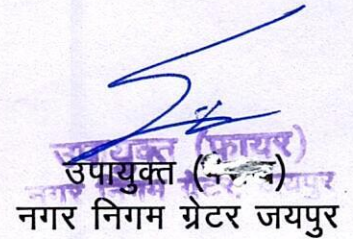 उपायुक्त (फायर)
नगर निगम ग्रेटर, जयपुर
उपायुक्त (
नगर निगम ग्रेटर जयपुर